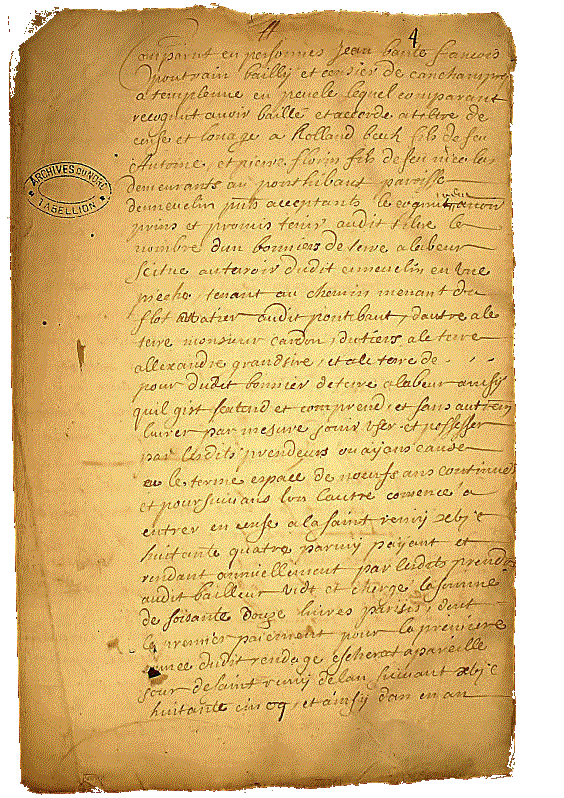 4
Comparut en personnes Jean bap^te francois
pontrain bailly et censier de canchampre
a templeuve en pevele lequel comparant
recognut avoir baillé et accordé a titre de
cense et louage a Rolland beuk fils de feu
Antoine, et pierre florin fils de feu nicolas
demeurants au ponthibaut paroisse
dennevelin puis acceptants le
prins et promis tenir audit tiltre le
nombre dun bonniers de terre a labeur
scitue au teroir dudit ennevelin en une
pieche, tenant au chemin menant du
flot Watier audit pontibaut, dautre a le
terre monsieur cardon, du tiers a le terre
allexandre grandsire, et a le terre de . . .
pour dudit bonnier de terre a labeur ainsy
quil gist sextend et comprend, et sans autrem
livrer par mesure jouir user et possesser
par lesdits prendeurs ou ayans cause
le terme espace de nœufs ans continuels
et poursuivans lun lautre comencé a
entrer en cense a la saint remy xbj^c
huitante quatre parmy payant et
rendant annuellement par lesdits prendrs
audit bailleur et cherge la somme
de soisante douze livres parisis, dont
le premier paiement pour la premiere
année dudit rendage eschera a pareille
jour de saint remy de lan suivant xbj^c
huitante cincq, et ainsy dan en an
ARCHIVES DU NORD
TABELLION